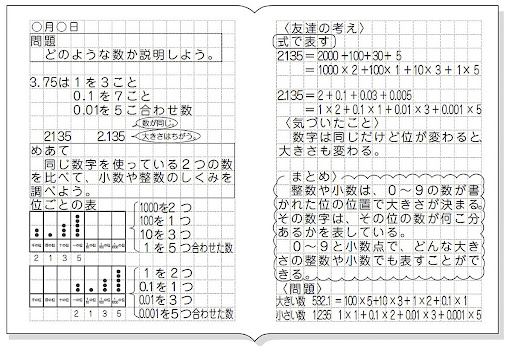 ○月○日
問題
どのような数か説明しよう。
3.75は 1 を 3 こと
0.1を 7 こと
0.01を 5 こ合わせ数
数が同じ。
2135 2.135
大きさはちがう。
めあて
同じ数字を使っている2つの数
を比べて、小数や整数のしくみを
調べよう。
位ごとの表
1000を2 つ
100を1 つ
10を3 つ
1 を5 つ合わせた数
2 1 3 5
1 を2 つ
0.1を1 つ
0.01を3 つ
0.001を5つ合わせた数
2 1 3 5
〈友達の考え〉
式で表す
2135 = 2000 +100+30+ 5
= 1000 × 2 +100× 1 + 10× 3 + 1 × 5
2.135 = 2 + 0.1 + 0.03 + 0.005
= 1 × 2 + 0.1 × 1 + 0.01 × 3 + 0.001 × 5
〈気づいたこと〉
数字は同じだけど位が変わると、
大きさも変わる。
まとめ
整数や小数は、0～9の数が書
かれた位の位置で大きさが決まる。
その数字は、その位の数が何こ分
あるかを表している。
0～9と小数点で、どんな大き
さの整数や小数でも表すことがで
きる。
〈問題〉
大きい数 532.1 = 100×5 + 10 × 3 + 1 × 2 + 0.1 × 1
小さい数 1.235 1 × 1 + 0.1 × 2 + 0.01 × 3 + 0.001 × 5